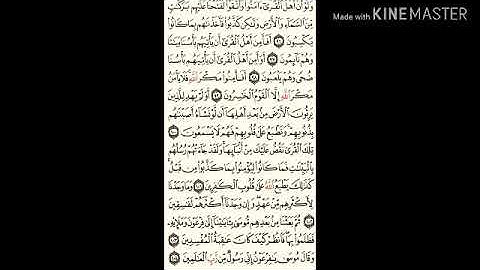 Made with KINEMASTER
وَلَوْ أَنَّ أَهْلَ ٱلْقُرَىٰٓ ءَامَنُوا۟ وَٱتَّقَوْا۟ لَفَتَحْنَا عَلَيْهِم بَرَكَٰتٍ
مِّنَ ٱلسَّمَآءِ وَٱلْأَرْضِ وَلَٰكِن كَذَّبُوا۟ فَأَخَذْنَٰهُم بِمَا كَانُوا۟
يَكْسِبُونَ ٩٦ أَفَأَمِنَ أَهْلُ ٱلْقُرَىٰٓ أَن يَأْتِيَهُم بَأْسُنَا بَيَٰتًا
وَهُمْ نَآئِمُونَ ٩٧ أَوَأَمِنَ أَهْلُ ٱلْقُرَىٰٓ أَن يَأْتِيَهُم بَأْسُنَا
ضُحًى وَهُمْ يَلْعَبُونَ ٩٨ أَفَأَمِنُوا۟ مَكْرَ ٱللَّهِ فَلَا يَأْمَنُ
مَكْرَ ٱللَّهِ إِلَّا ٱلْقَوْمُ ٱلْخَٰسِرُونَ ٩٩ أَوَلَمْ يَهْدِ لِلَّذِينَ
يَرِثُونَ ٱلْأَرْضَ مِنۢ بَعْدِ أَهْلِهَآ أَن لَّوْ نَشَآءُ أَصَبْنَٰهُم
بِذُنُوبِهِمْ وَنَطْبَعُ عَلَىٰ قُلُوبِهِمْ فَهُمْ لَا يَسْمَعُونَ ١٠٠
تِلْكَ ٱلْقُرَىٰ نَقُصُّ عَلَيْكَ مِنْ أَنۢبَآئِهَا وَلَقَدْ جَآءَتْهُمْ رُسُلُهُم
بِٱلْبَيِّنَٰتِ فَمَا كَانُوا۟ لِيُؤْمِنُوا۟ بِمَا كَذَّبُوا۟ مِن قَبْلُ
كَذَٰلِكَ يَطْبَعُ ٱللَّهُ عَلَىٰ قُلُوبِ ٱلْكَٰفِرِينَ ١٠١ وَمَا وَجَدْنَا
لِأَكْثَرِهِم مِّنْ عَهْدٍ وَإِن وَجَدْنَآ أَكْثَرَهُمْ لَفَٰسِقِينَ
١٠٢ ثُمَّ بَعَثْنَا مِنۢ بَعْدِهِم مُّوسَىٰ بِـَٔايَٰتِنَآ إِلَىٰ فِرْعَوْنَ وَمَلَإِي۟هِۦ
فَظَلَمُوا۟ بِهَا فَٱنظُرْ كَيْفَ كَانَ عَٰقِبَةُ ٱلْمُفْسِدِينَ ١٠٣
وَقَالَ مُوسَىٰ يَٰفِرْعَوْنُ إِنِّى رَسُولٌ مِّن رَّبِّ ٱلْعَٰلَمِينَ ١٠٤